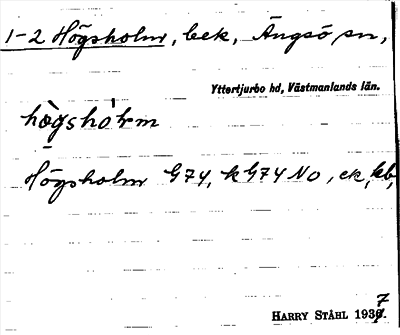 1-2 Högsholm, bek, Ängsö sn,
Yttertjurbo hd, Västmanlands län.
hògshólm
Högsholm G74, k G74 NO, ek, kb,
HARRY STÅHL 1937.